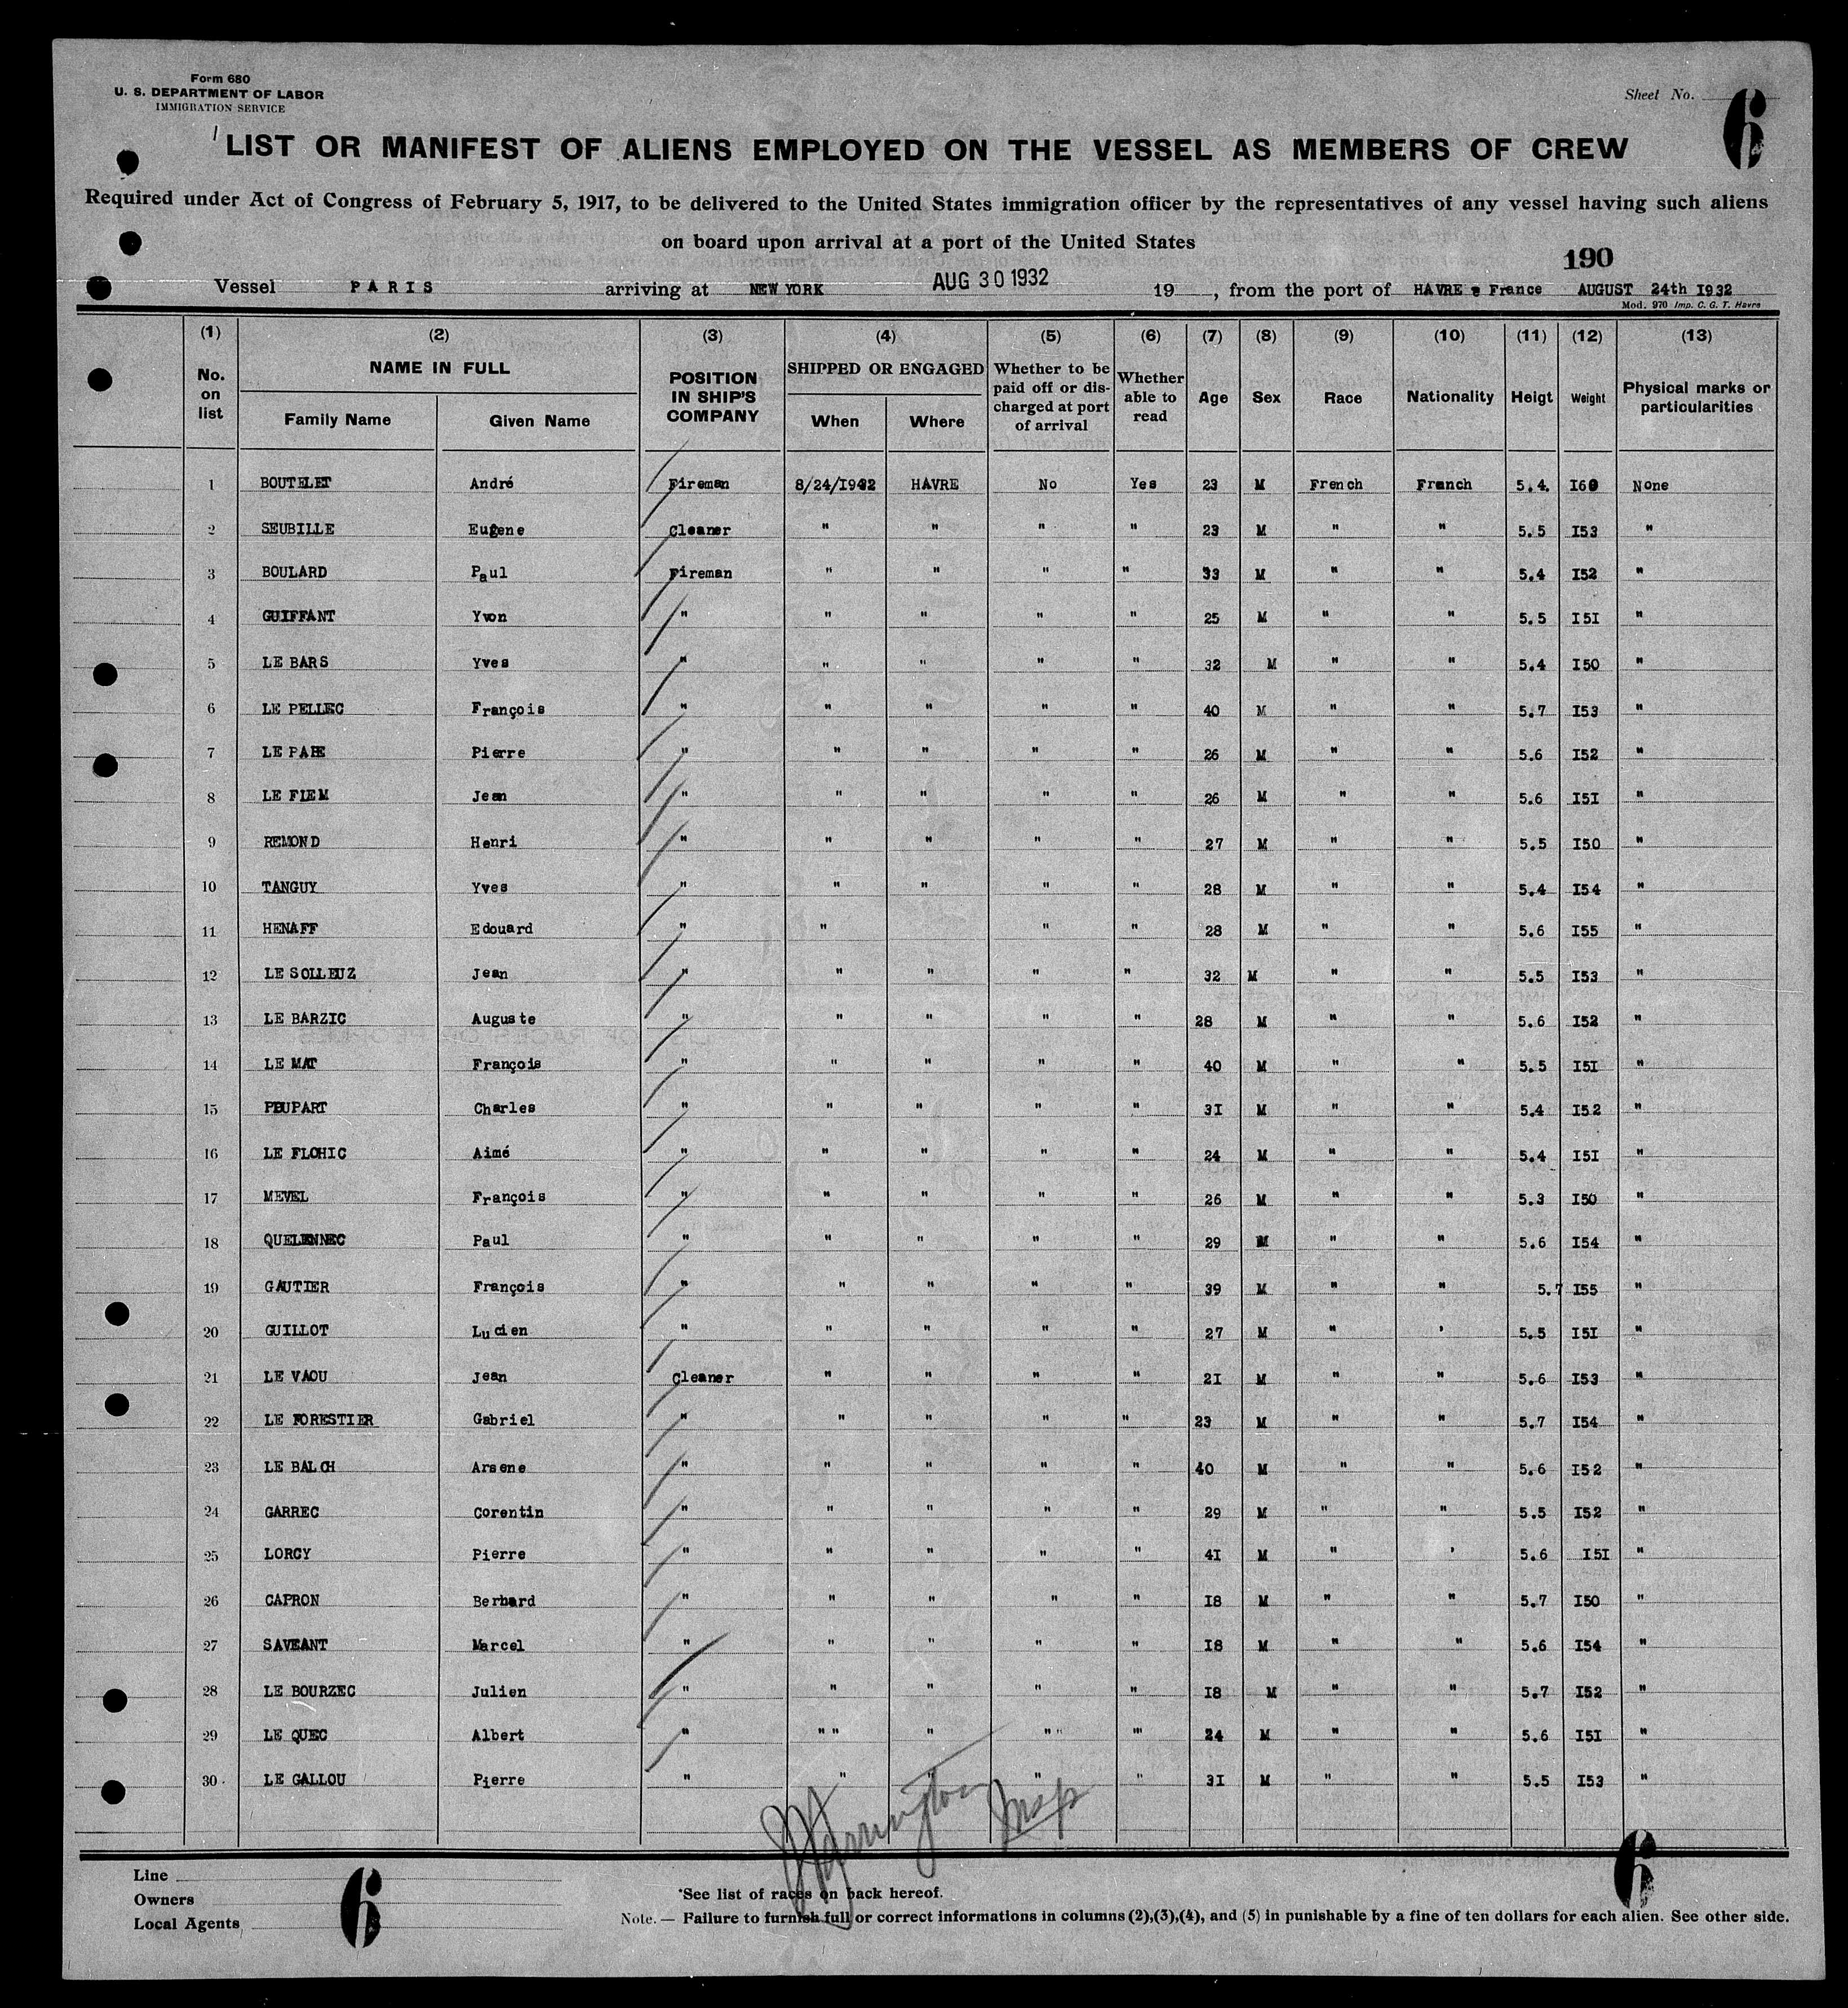 Form 680
U. S. DEPARTMENT OF LABOR
IMMIGRATION SERVICE
Sheet No. 6
LIST OR MANIFEST OF ALIENS EMPLOYED ON THE VESSEL AS MEMBERS OF CREW
Required under Act of Congress of February 5, 1917, to be delivered to the United States immigration officer by the representatives of any vessel having such aliens
on board upon arrival at a port of the United States
190
Vessel PARIS arriving at NEW YORK AUG 30 1932 19 , from the port of HAVRE France AUGUST 24th I932
Mod. 970 Imp. C. G. T. Havre
(1) (2) (3) (4) (5) (6) (7) (8) (9) (10) (11) (12) (13)
No. on list NAME IN FULL Family Name Given Name POSITION IN SHIP'S COMPANY SHIPPED OR ENGAGED When Where Whether to be paid off or discharged at port of arrival Whether able to read Age Sex Race Nationality Heigt Weight Physical marks or particularities
1 BOUTELET André Fireman 8/24/I932 HAVRE No Yes 23 M French French 5.4. I60 None
2 SEUBILLE Eugene Cleaner " " " " 23 M " " 5.5 I53 "
3 BOULARD Paul Fireman " " " " 33 M " " 5.4 I52 "
4 GUIFFANT Yvon " " " " " 25 M " " 5.5 I5I "
5 LE BARS Yves " " " " " 32 M " " 5.4 I50 "
6 LE PELLEC François " " " " " 40 M " " 5.7 I53 "
7 LE PAPE Pierre " " " " " 26 M " " 5.6 I52 "
8 LE FIEM Jean " " " " " 26 M " " 5.6 I5I "
9 REMOND Henri " " " " " 27 M " " 5.5 I50 "
10 TANGUY Yves " " " " " 28 M " " 5.4 I54 "
11 HENAFF Edouard " " " " 28 M " " 5.6 I55 "
12 LE SOLLEUZ Jean " " " " " 32 M " " 5.5 I53 "
13 LE BARZIC Auguste " " " " " 28 M " " 5.6 I52 "
14 LE MAT François " " " " " 40 M " " 5.5 I5I "
15 PEUPART Charles " " " " " 3I M " " 5.4 I52 "
16 LE FLOHIC Aimé " " " " " 24 M " " 5.4 I5I "
17 MEVEL François " " " " " 26 M " " 5.3 I50 "
18 QUELENNEC Paul " " " " " 29 M " " 5.6 I54 "
19 GAUTIER François " " " " " 39 M " " 5.7 I55 "
20 GUILLOT Lucien " " " " " 27 M " ' 5.5 I5I "
21 LE VAOU Jean Cleaner " " " " 2I M " " 5.6 I53 "
22 LE FORESTIER Gabriel " " " " " 23 M " " 5.7 I54 "
23 LE BALCH Arsene " " " " " 40 M " " 5.6 I52 "
24 GARREC Corentin " " " " 29 M " " 5.5 I52 "
25 LORCY Pierre " " " " " 4I M " ' 5.6 I5I "
26 CAPRON Berhard " " " " " I8 M " " 5.7 I50 "
27 SAVEANT Marcel " " " " " I8 M " " 5.6 I54 "
28 LE BOURZEC Julien " " " " " I8 M " " 5.7 I52 "
29 LE QUEC Albert " " " " " " " 24 M " " 5.6 I5I "
30 LE GALLOU Pierre " " " " " 3I M " " 5.5 I53 "
Insp
Line
Owners
Local Agents
6
6
*See list of races on back hereof.
Note. — Failure to furnish full or correct informations in columns (2),(3),(4), and (5) in punishable by a fine of ten dollars for each alien. See other side.